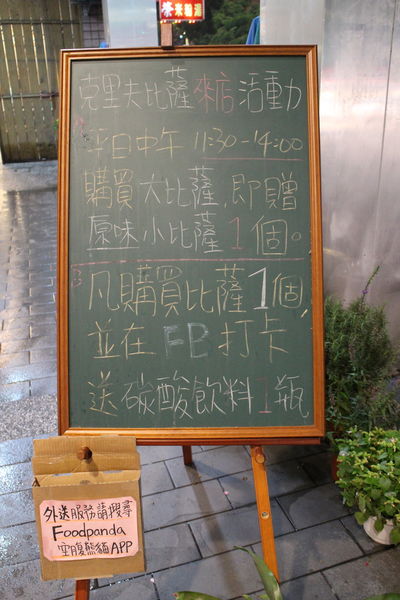 茶米粉湯
克里夫比薩來店活動
平日中午 11:30-14:00
購買大比薩,即贈
原味小比薩1個。
凡購買比薩1個,
並在FB打卡
送碳酸飲料1瓶
外送服務請搜尋
Foodpanda
空腹熊貓APP